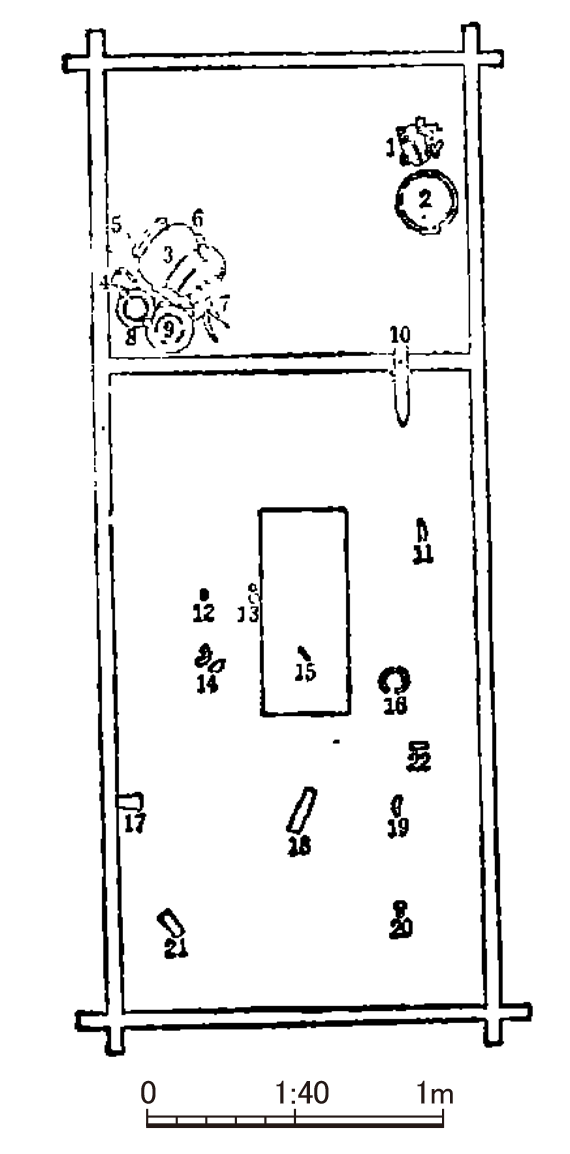 1
2
6
5
3
4
7
8
9
10
11
12
13
15
14
16
22
17
19
18
20
21
0 1:40 1m